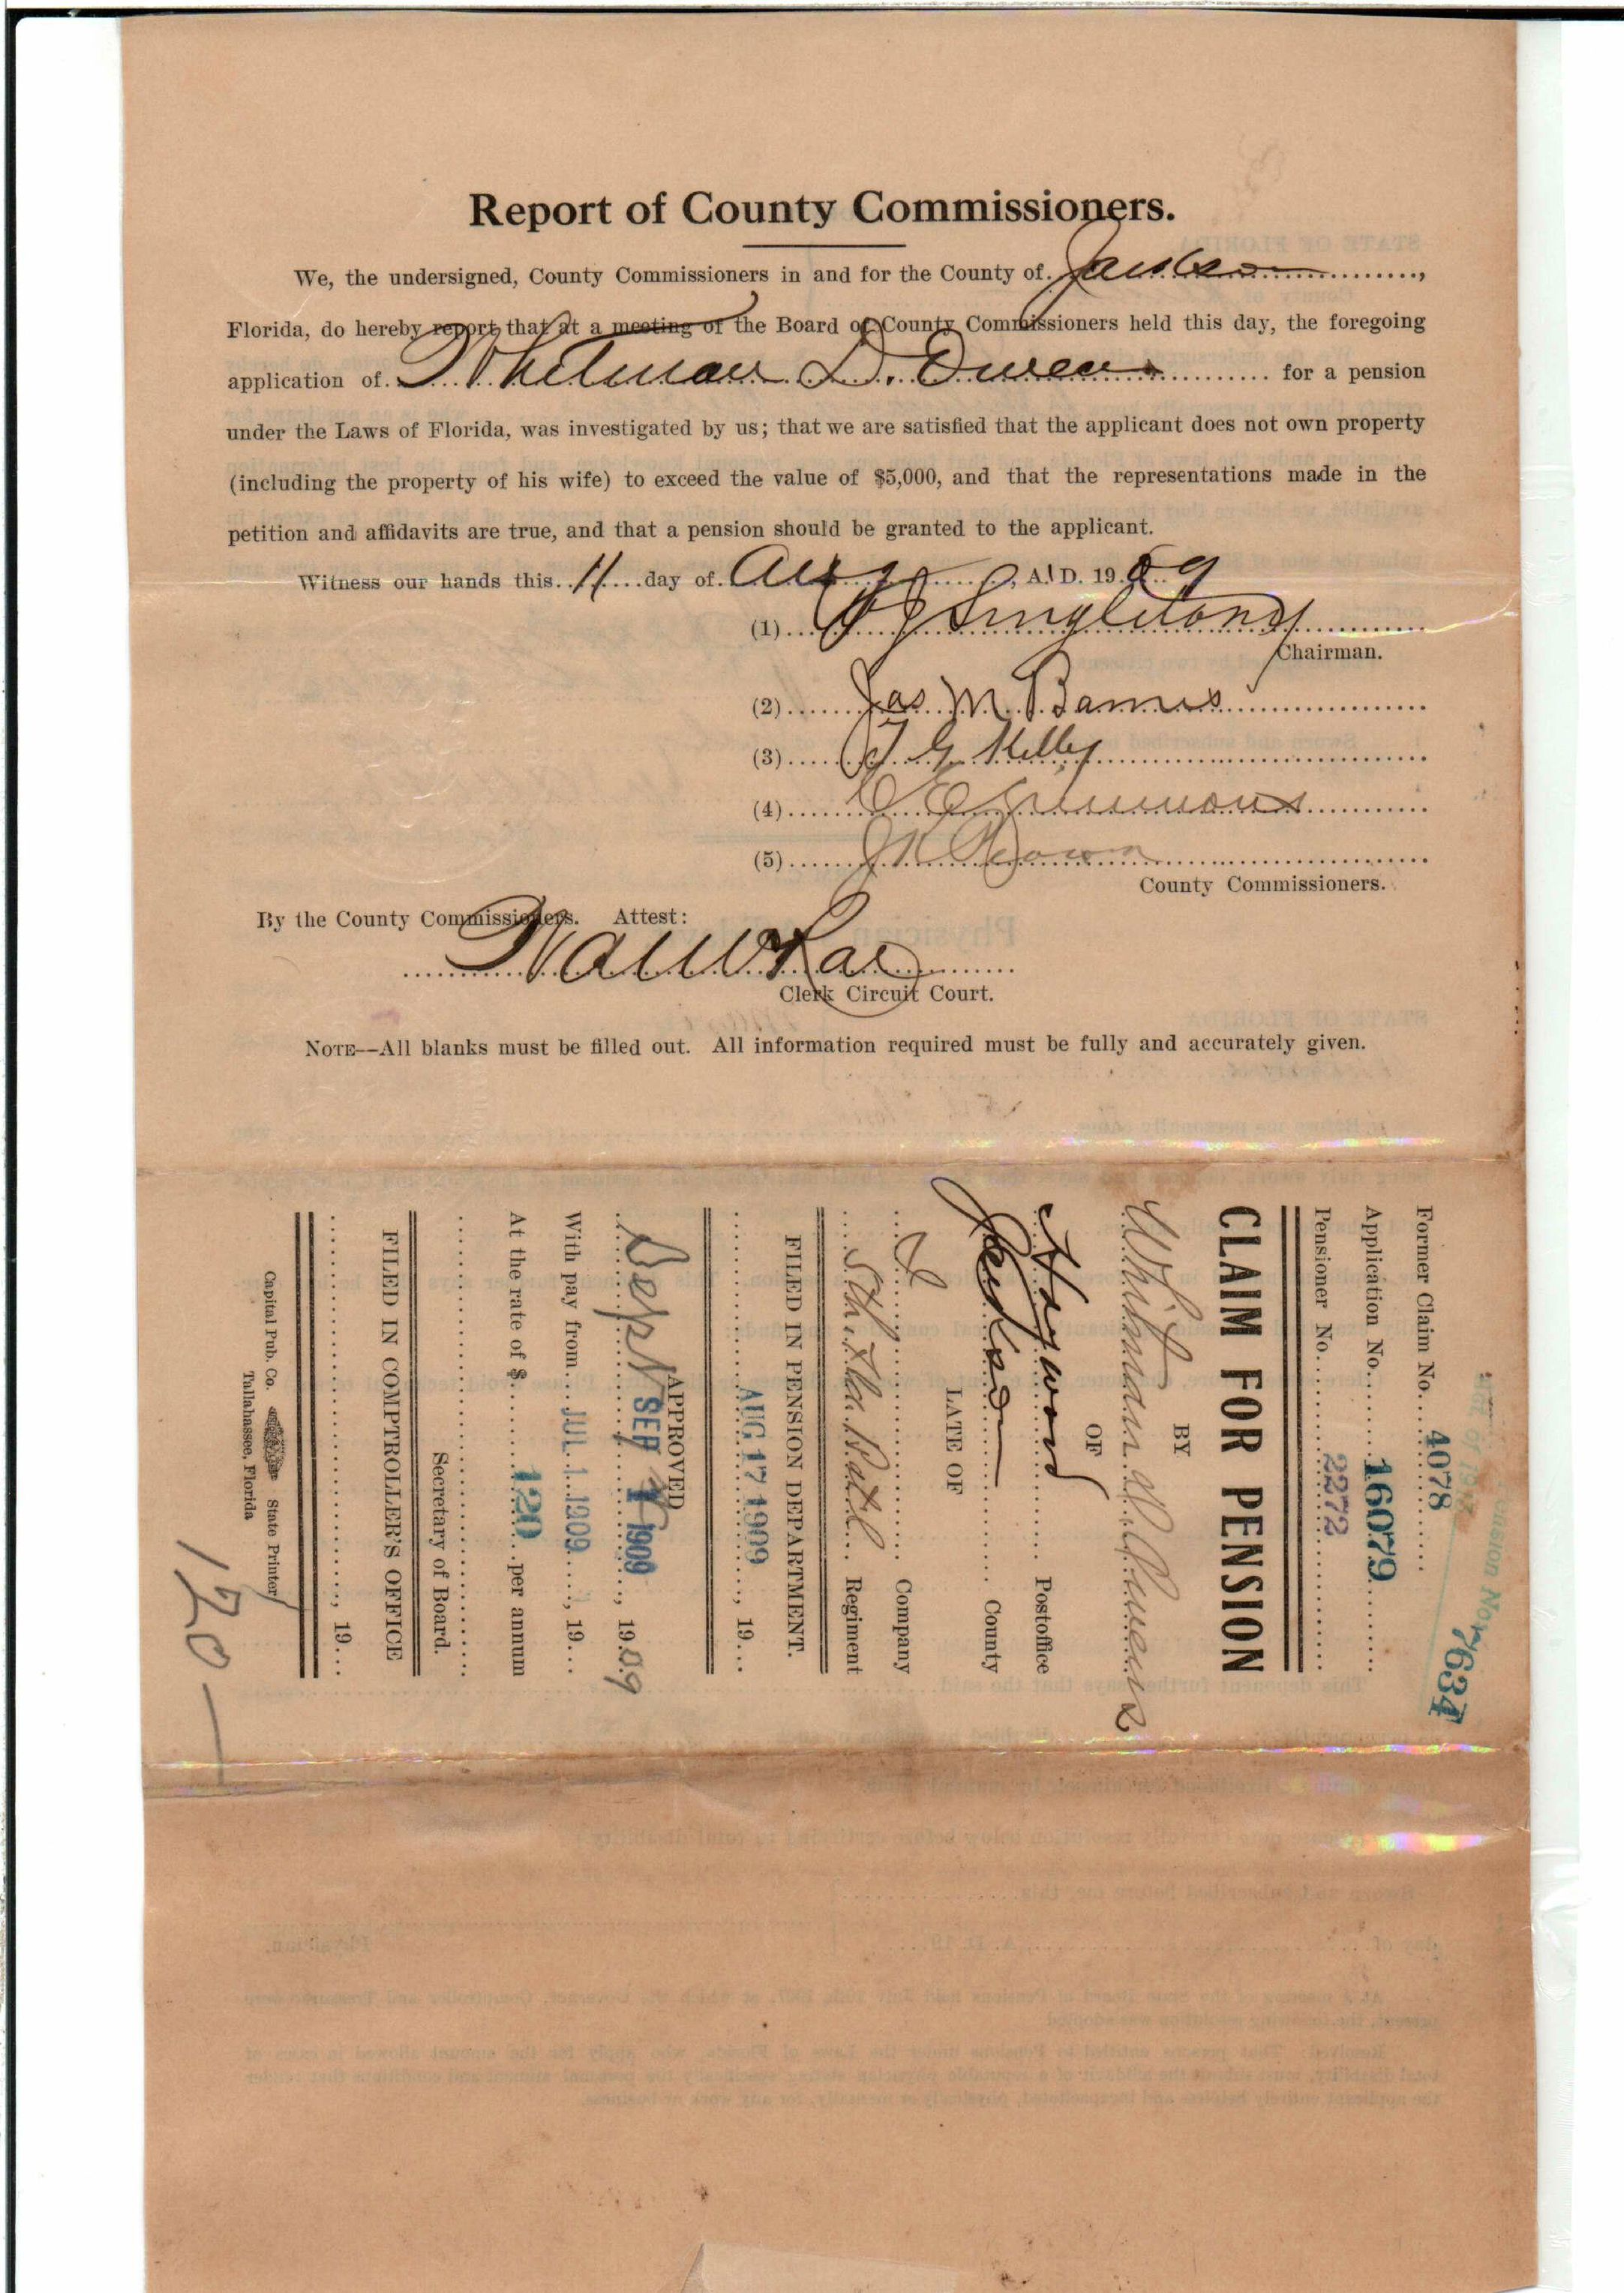 Report of County Commissioners.
We, the undersigned, County Commissioners in and for the County of Jackson,
Florida, do hereby report that at a meeting of the Board of County Commissioners held this day, the foregoing
application of Whitman D. Owens for a pension
under the Laws of Florida, was investigated by us; that we are satisfied that the applicant does not own property
(including the property of his wife) to exceed the value of $5,000, and that the representations made in the
petition and affidavits are true, and that a pension should be granted to the applicant.
Witness our hands this 11 day of Aug, A. D. 1909
(1) Singletary
Chairman.
(2) Jas M Barnes
(3) J G Kelly
(4)
(5)
County Commissioners.
By the County Commissioners. Attest:
Clerk Circuit Court.
NOTE--All blanks must be filled out. All information required must be fully and accurately given.
Pension No. 7634
Act of
Former Claim No. 4078
Application No. 16079
Pensioner No. 2272
CLAIM FOR PENSION
BY
Whitman D. Owens
OF
Haywood Postoffice
Jackson County
LATE OF
Company
5th Fla Batl. Regiment
FILED IN PENSION DEPARTMENT.
AUG 17 1909, 19
APPROVED
Sep SEP 1 1909, 1909
With pay from JUL 1 1909, 19
At the rate of $ 120 per annum
Secretary of Board.
FILED IN COMPTROLLER'S OFFICE
, 19
Capital Pub. Co. State Printer
Tallahassee, Florida
120